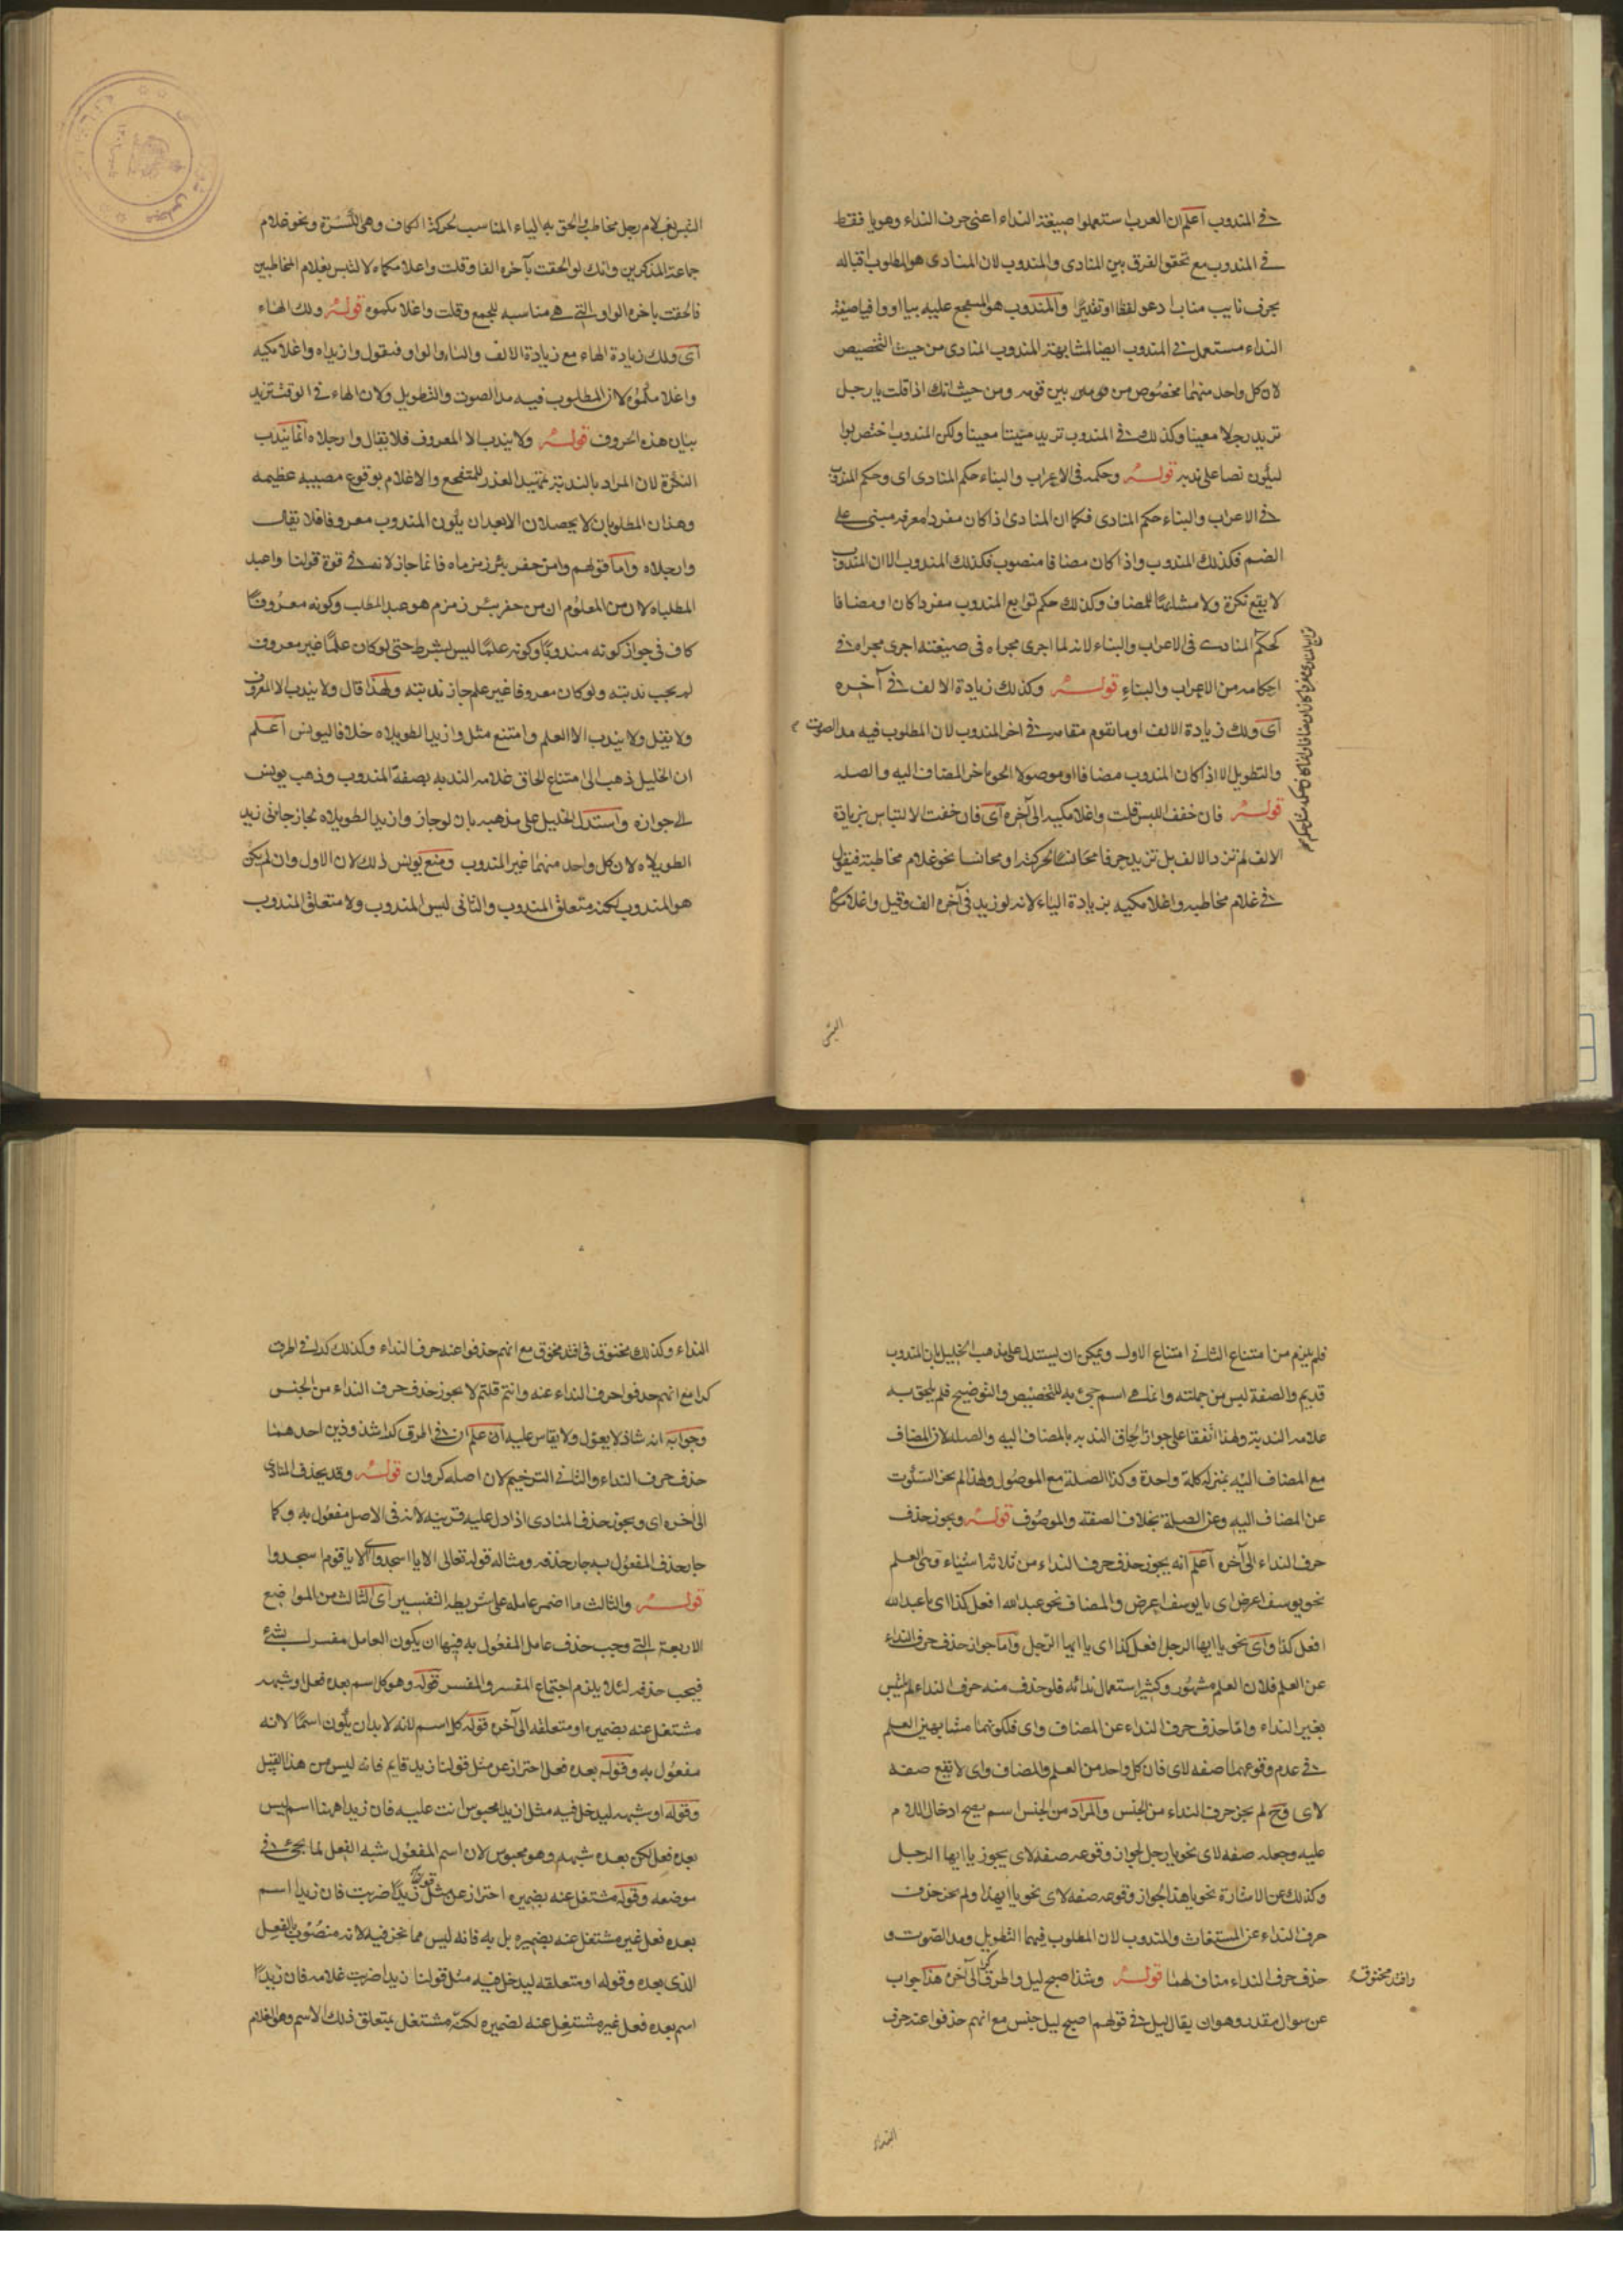 في المندوب اعلم ان العرب استعملوا صيغة النداء اعني حرف النداء وهو يا فقط
في المندوب مع تحقق الفرق بين المنادى والمندوب لان المنادى هو المطلوب اقباله
بحرف نايب مناب ادعو لفظا او تقديرا والمندوب هو المتفجع عليه بيا او وا فيا صيغة
النداء مستعمل في المندوب ايضا لمشابهة المندوب المنادى من حيث التخصيص
لان كل واحد منهما مخصوص من قومه بين قومه ومن حيث انك اذا قلت يا رجل
تريد رجلا معينا وكذلك في المندوب تريد ميتا معينا ولكن المندوب اختص بوا
ليكون نصا على ندبه قوله وحكمه في الاعراب والبناء حكم المنادى اى وحكم المندوب
في الاعراب والبناء حكم المنادى فكما ان المنادى اذا كان مفردا معرفه مبنى على
الضم فكذلك المندوب واذا كان مضافا منصوب فكذلك المندوب الا ان المندوب
لا يقع نكرة ولا مشابها للمضاف وكذلك حكم توابع المندوب مفردا كان او مضافا
كحكم المنادى في الاعراب والبناء لانه لما اجرى مجراه في صيغته اجرى مجراه في
احكامه من الاعراب والبناء قوله وكذلك زيادة الالف في آخره
اى ولك زيادة الالف او ما تقوم مقامه في اخر المندوب لان المطلوب فيه مد الصوت
والتطويل الا اذا كان المندوب مضافا او موصولا الحق باخر المضاف اليه والصله
قوله فان خفت اللبس قلت واغلامكيه الى آخره اى فان خفت الالتباس بزيادة
الالف لم تزد الالف بل تزيد حرفا مجانسا لحركته او مجانسا نحو غلام مخاطبة فيقول
في غلام مخاطبه واغلامكيه بزيادة الياء لانه لو زيد في آخره الف وقيل واغلامكا
التبس
التبس بغلام رجل مخاطب والحق به الياء المناسب لحركة الكاف وهي الكسرة ونحو غلام
جماعة المذكرين وانك لو الحقت بآخره الفا وقلت واغلامكماه لالتبس بغلام المخاطبين
فالحقت باخره الواو التي هي مناسبه للجمع وقلت واغلامكموه قوله ولك الهاء
اى ولك زيادة الهاء مع زيادة الالف والياء والواو فتقول وازيداه واغلامكيه
واغلامكموه لان المطلوب فيه مد الصوت والتطويل ولان الهاء في الوقف تزيد
بيان هذه الحروف قوله ولا يندب الا المعروف فلا يقال وارجلاه انما يندب
النكرة لان المراد بالندبة تمهيد العذر للمتفجع والاعلام بوقوع مصيبه عظيمه
وهذان المطلوبان لا يحصلان الا بعد ان يكون المندوب معروفا فلا يقال
وارجلاه واما قولهم وامن حفر بئر زمزماه فانما جاز لانه في قوة قولنا واعبد
المطلباه لان من المعلوم ان من حفر بئر زمزم هو عبد المطلب وكونه معروفا
كاف في جواز كونه مندوبا وكونه علما ليس بشرط حتى لو كان علما غير معروف
لم يجب ندبته ولو كان معروفا غير علم جاز ندبته ولهذا قال ولا يندب الا المعروف
ولا يقل ولا يندب الا العلم وامتنع مثل وازيد الطويلاه خلافا ليونس اعلم
ان الخليل ذهب الى امتناع الحاق علامه الندبه بصفة المندوب وذهب يونس
الى جوازه واستدل الخليل على مذهبه بان لو جاز وازيد الطويلاه لجاز جاءني زيد
الطويلاه لان كل واحد منهما غير المندوب ومنع يونس ذلك لان الاول وان لم يكن
هو المندوب لكنه متعلق المندوب والثاني ليس المندوب ولا متعلق المندوب
فلم يلزم من امتناع الثاني امتناع الاول ويمكن ان يستدل على مذهب الخليل بان المندوب
قديم والصفة ليس من جملته وانما هي اسم جيء به للتخصيص والتوضيح فلم يلحق به
علامه الندبة ولهذا اتفقا على جواز الحاق الندبه بالمضاف اليه والصله لان المضاف
مع المضاف اليه بمنزلة كلمة واحدة وكذا الصلة مع الموصول ولهذا لم يجز السكوت
عن المضاف اليه وعن الصلة بخلاف الصفة والموصوف قوله ويجوز حذف
حرف النداء الى آخره اعلم انه يجوز حذف حرف النداء من ثلاثة اشياء وهي العلم
نحو يوسف اعرض اى يا يوسف اعرض والمضاف نحو عبد الله افعل كذا اى يا عبد الله
افعل كذا واى نحو يا ايها الرجل افعل كذا اى يا ايها الرجل واما جواز حذف حرف النداء
عن العلم فلان العلم مشهور وكثير استعمال ندائه فلو حذف منه حرف النداء لم يلتبس
بغير النداء واما حذف حرف النداء عن المضاف واى فلكونهما مشابهين العلم
في عدم وقوعهما صفه لاى فان كل واحد من العلم والمضاف واى لا يقع صفه
لاى وح لم يجز حرف النداء من الجنس والمراد من الجنس اسم يصح ادخال اللام
عليه وجعله صفه لاى نحو يا رجل لجواز وقوعه صفه لاى يجوز يا ايها الرجل
وكذلك عن الاشارة نحو يا هذا لجواز وقوعه صفه لاى نحو يا ايهذا ولم يجز حذف
حرف النداء عن المستغاث والمندوب لان المطلوب فيهما التطويل ومد الصوت و
حذف حرف النداء مناف لهما قوله وشذ اصبح ليل واطرق كرا الى آخره هذا جواب
وافتد مخنوق
عن سوال مقدر وهو ان يقال ليل في قولهم اصبح ليل جنس مع انهم حذفوا عنه حرف
النداء
النداء وكذلك مخنوق في افتد مخنوق مع انهم حذفوا عنه حرف النداء وكذلك كرا في اطرق
كرا مع انهم حذفوا حرف النداء عنه وانتم قلتم لا يجوز حذف حرف النداء من الجنس
وجوابه انه شاذ لا يعول ولا يقاس عليه اعلم ان في اطرق كرا شذوذين احدهما
حذف حرف النداء والثاني الترخيم لان اصله كروان قوله وقد يحذف المنادى
الى آخره اى ويجوز حذف المنادى اذا دل عليه قرينه لانه في الاصل مفعول به وكما
جاز حذف المفعول به جاز حذفه ومثاله قوله تعالى الا يا اسجدوا اى الا يا قوم اسجدوا
قوله والثالث ما اضمر عامله على شريطة التفسير اى الثالث من المواضع
الاربعة التي وجب حذف عامل المفعول به فيها ان يكون العامل مفسر بشيء
فيجب حذفه لئلا يلزم اجتماع المفسر والمفسر قوله وهو كل اسم بعده فعل او شبهه
مشتغل عنه بضميره او متعلقه الى آخره قوله كل اسم لانه لا بد ان يكون اسما لانه
مفعول به وقوله بعده فعل احتراز عن مثل قولنا زيد قايم فانه ليس من هذا القبيل
وقوله او شبهه ليدخل فيه مثل ازيدا محبوس انت عليه فان زيدا ههنا اسم ليس
بعده فعل لكن بعده شبهه وهو محبوس لان اسم المفعول شبه الفعل لما يجيء في
موضعه وقوله مشتغل عنه بضميره احتراز عن مثل قولنا زيدا ضربت فان زيدا اسم
بعده فعل غير مشتغل عنه بضميره بل به فانه ليس مما نحن فيه لانه منصوب بالفعل
الذي بعده وقوله او متعلقه ليدخل فيه مثل قولنا زيدا ضربت غلامه فان زيدا
اسم بعده فعل غير مشتغل عنه بضميره لكنه مشتغل بمتعلق ذلك الاسم وهو الغلام